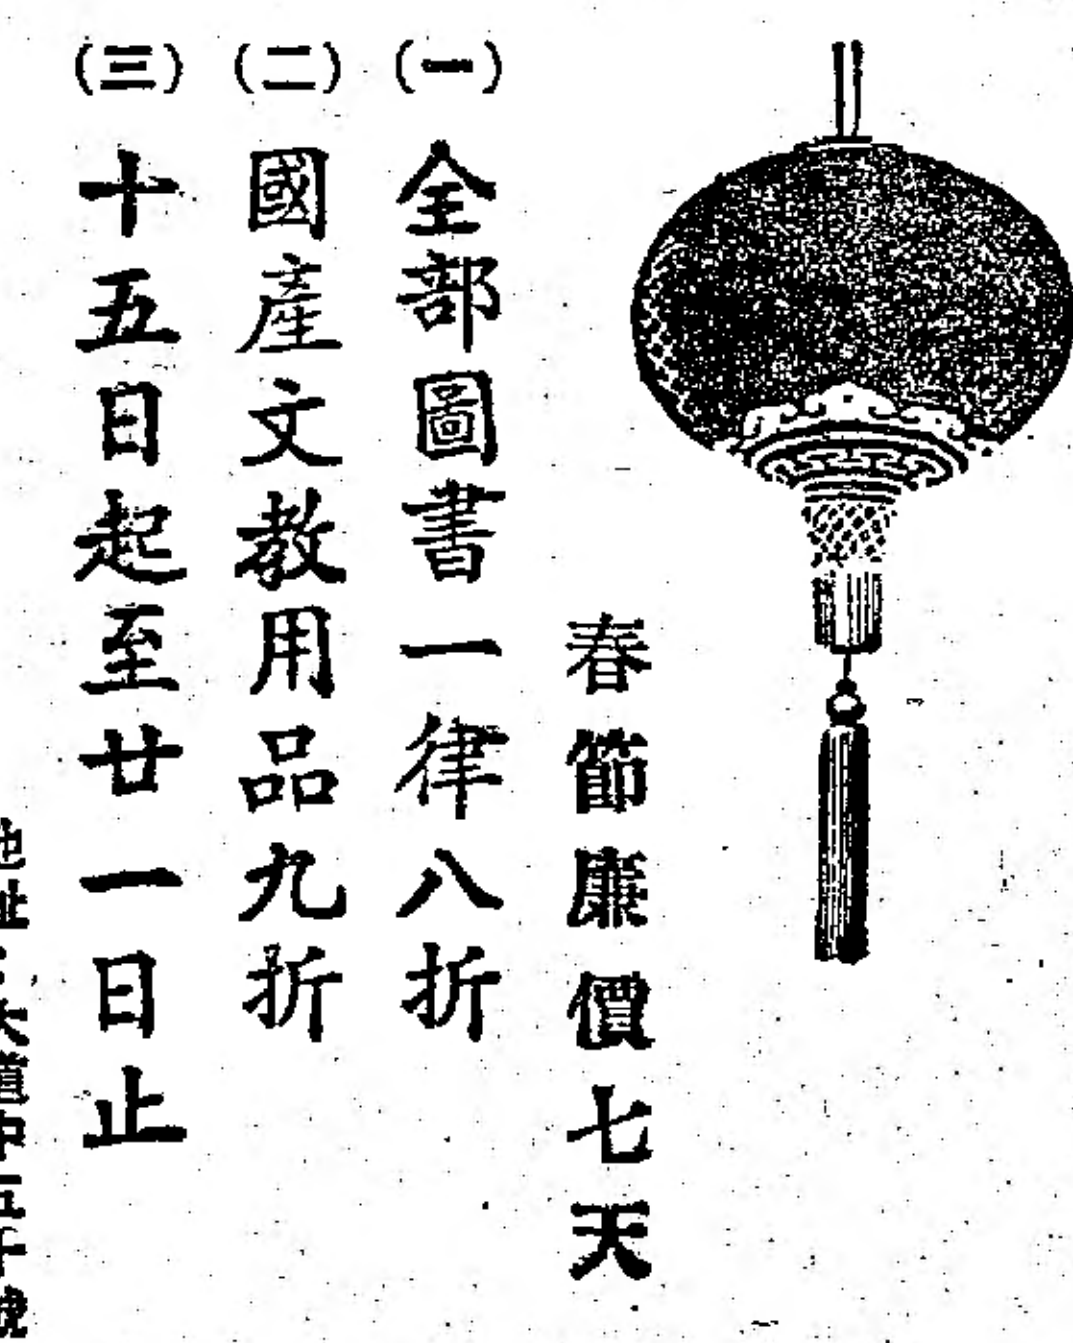 春節廉價七天
(一)全部圖書一律八折
(二)國產文教用品九折
(三)十五日起至廿一日止
地址：大道中五十號